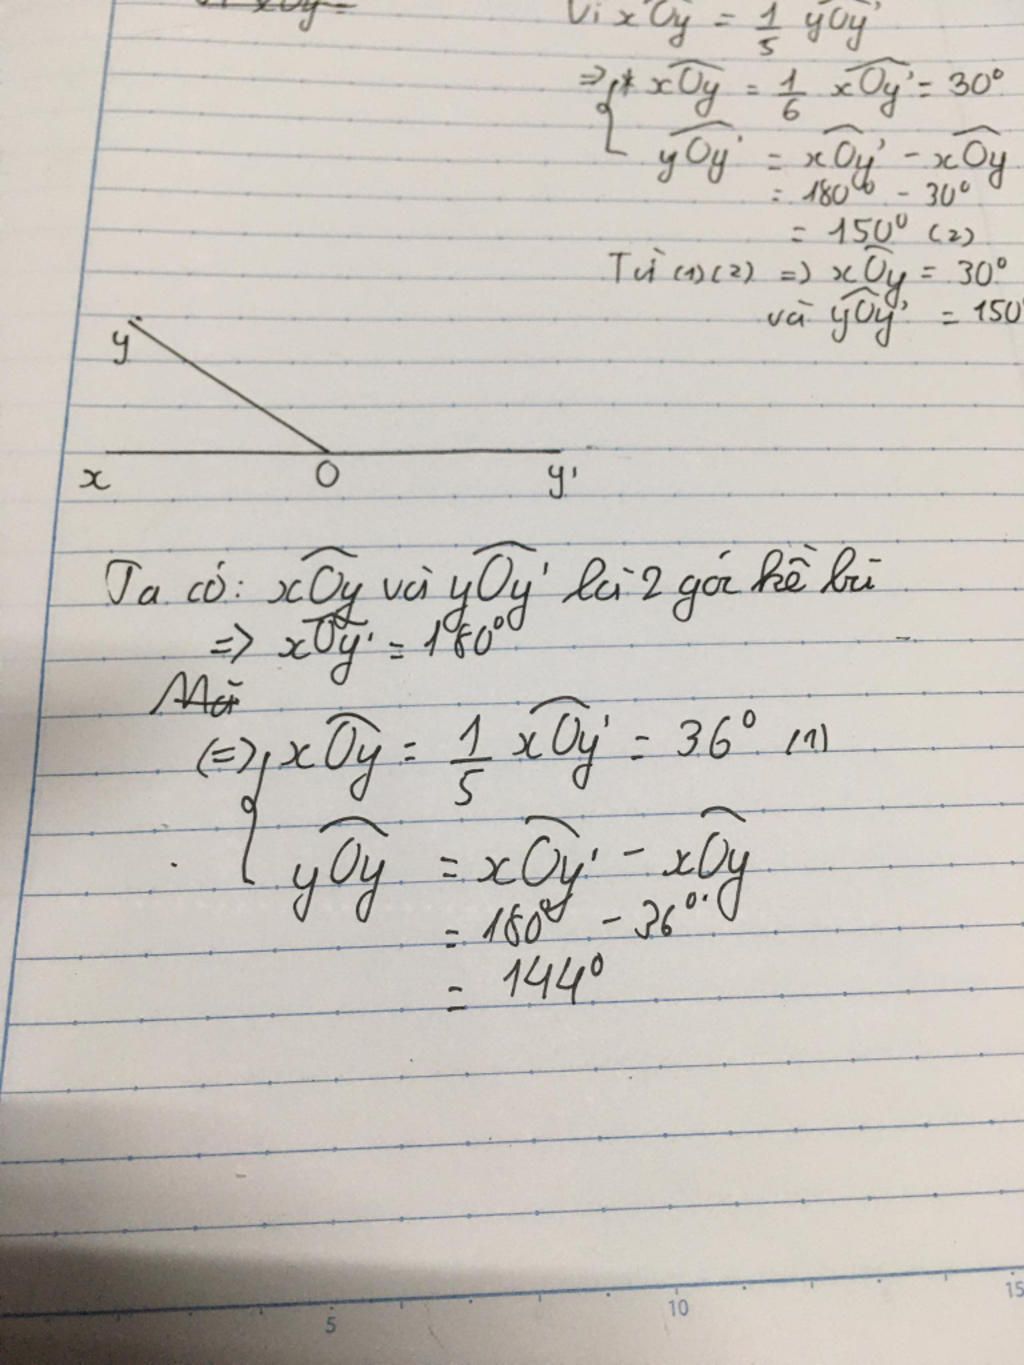 Vì xOy = 1/5 yOy'
=> * xOy = 1/6 xOy' = 30°
yOy' = xOy' - xOy
= 180° - 30°
= 150° (2)
Từ (1) (2) => xOy = 30°
và yOy' = 150°
y
x O y'
Ta có: xOy và yOy' là 2 góc kề bù
=> xOy' = 180°
Mà
(=>) xOy = 1/5 xOy' = 36° (1)
yOy = xOy' - xOy
= 180° - 36°
= 144°
5 10 15